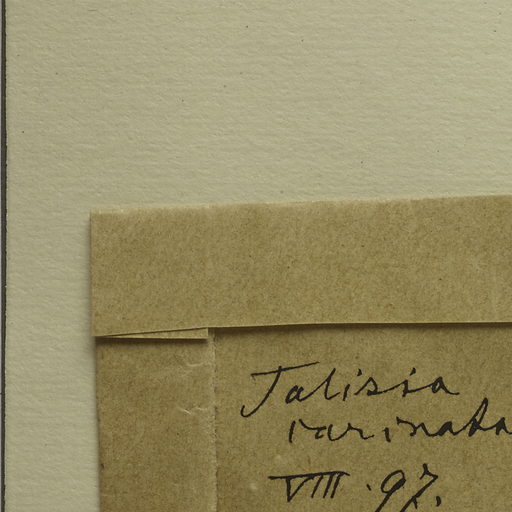 Talisia
carinata
VIII. 97.